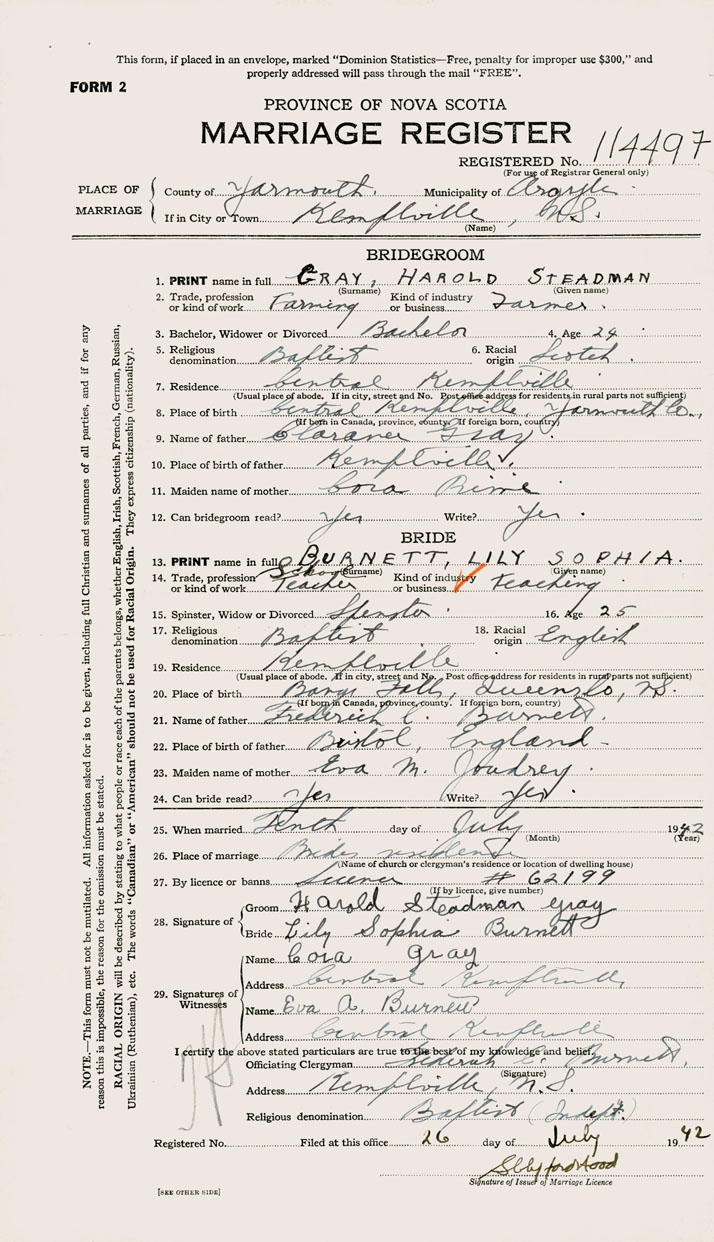 This form, if placed in an envelope, marked “Dominion Statistics—Free, penalty for improper use $300,” and
properly addressed will pass through the mail “FREE”.
FORM 2
PROVINCE OF NOVA SCOTIA
MARRIAGE REGISTER
REGISTERED No. 114497
(For use of Registrar General only)
PLACE OF MARRIAGE
County of Yarmouth. Municipality of Argyle
If in City or Town Kemptville, N.S.
(Name)
BRIDEGROOM
1. PRINT name in full GRAY, HAROLD STEADMAN
(Surname) (Given name)
2. Trade, profession or kind of work Farming Kind of industry or business Farmer.
3. Bachelor, Widower or Divorced Bachelor 4. Age 24
5. Religious denomination Baptist 6. Racial origin Scotch.
7. Residence Central Kemptville
(Usual place of abode. If in city, street and No. Post office address for residents in rural parts not sufficient)
8. Place of birth Central Kemptville, Yarmouth Co.,
(If born in Canada, province, county. If foreign born, country)
9. Name of father Clarance Gray.
10. Place of birth of father Kemptville.
11. Maiden name of mother Cora
12. Can bridegroom read? Yes Write? Yes.
BRIDE
13. PRINT name in full BURNETT, LILY SOPHIA.
(Surname) (Given name)
14. Trade, profession or kind of work School Teacher Kind of industry or business teaching.
15. Spinster, Widow or Divorced Spinster. 16. Age 25
17. Religious denomination Baptist 18. Racial origin English
19. Residence Kemptville
(Usual place of abode. If in city, street and No. Post office address for residents in rural parts not sufficient)
20. Place of birth Bangs Falls, Queens Co, N.S.
(If born in Canada, province, county. If foreign born, country)
21. Name of father Frederick C. Burnett.
22. Place of birth of father Bristol, England-
23. Maiden name of mother Eva M. Joudrey.
24. Can bride read? Yes Write? Yes.
25. When married Tenth day of July 1942
(Month) (Year)
26. Place of marriage Brides residence
(Name of church or clergyman's residence or location of dwelling house)
27. By licence or banns License # 62199
(If by licence, give number)
28. Signature of
Groom Harold Steadman Gray
Bride Lily Sophia Burnett
29. Signatures of Witnesses
Name Cora Gray
Address Central Kemptville
Name Eva A. Burnett
Address Central Kemptville
I certify the above stated particulars are true to the best of my knowledge and belief.
Officiating Clergyman Frederick C. Burnett.
(Signature)
Address Kemptville, N.S.
Religious denomination Baptist (Indept.)
Registered No. Filed at this office 26 day of July 1942
Signature of Issuer of Marriage Licence
[SEE OTHER SIDE]
NOTE.—This form must not be mutilated. All information asked for is to be given, including full Christian and surnames of all parties, and if for any
reason this is impossible, the reason for the omission must be stated.
RACIAL ORIGIN will be described by stating to what people or race each of the parents belongs, whether English, Irish, Scottish, French, German, Russian,
Ukrainian (Ruthenian), etc. The words “Canadian” or “American” should not be used for Racial Origin. They express citizenship (nationality).